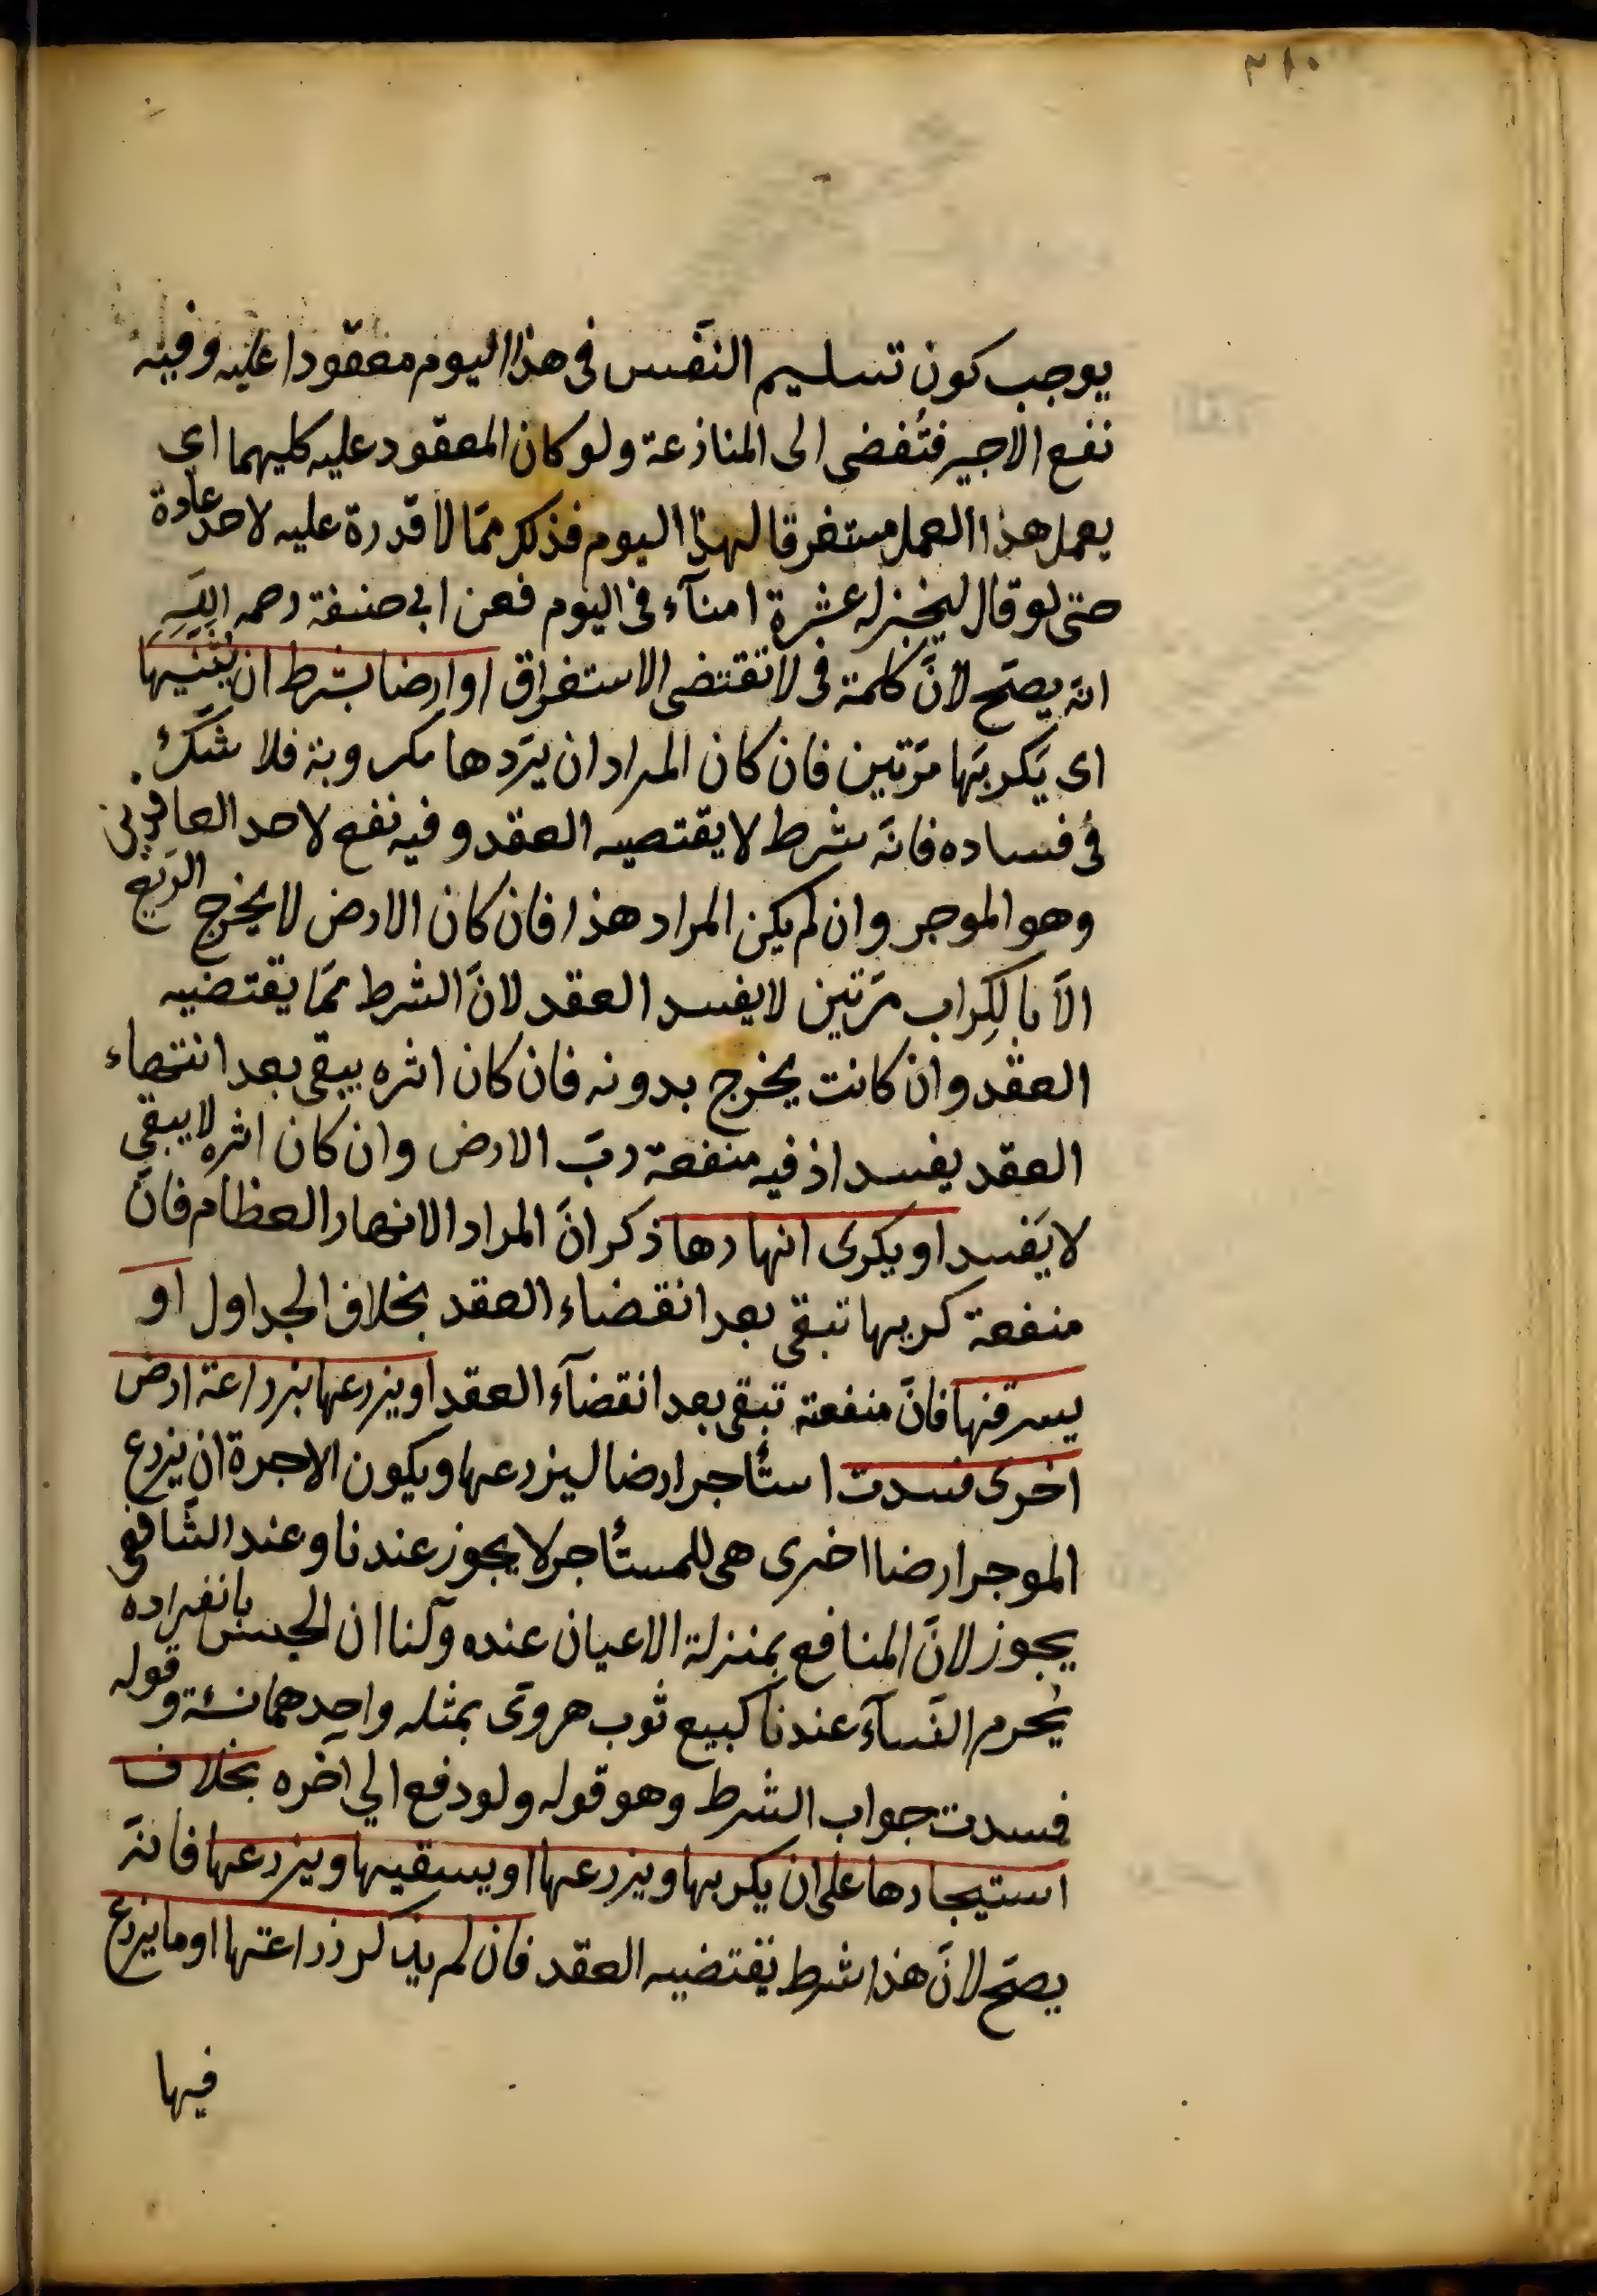 ٣١٠
يوجب كون تسليم النّفس فى هذا اليوم معقودا عليه وفيه
نفع الاجير فتُفضى الى المنازعة ولو كان المعقود عليه كليهما اى
يعمل هذا العمل مستغرقا لهذا اليوم فذلك ممّا لا قدرة عليه لاحد عادة
حتى لو قال ليخبز له عشرة امنآء فى اليوم فعن ابى حنيفة رحمه اللّه
انّه يصحّ لانّ كلمة فى لا تقتضى الاستغراق او ارضا بشرط ان يثنّيها
اى يَكربَها مرّتين فان كان المراد ان يردّها مكروبة فلا شكّ
فى فساده فانّه شرط لا يقتضيه العقد وفيه نفع لاحد العاقدين
وهو الموجر وان لم يكن المراد هذا فان كان الارض لا يخرج الرّيع
الاّ بالكِراب مرّتين لا يفسد العقد لانّ الشرط ممّا يقتضيه
العقد وان كانت يخرج بدونه فان كان اثره يبقى بعد انتهاء
العقد يفسد اذ فيه منفعة ربّ الارض وان كان اثره لا يبقى
لا يَفسد او يكرى انهارها ذكر انّ المراد الانهار العظام فانّ
منفعة كريها تبقى بعد انقضاء العقد بخلاف الجداول او
يسرقنها فانّ منفعته تبقى بعد انقضآء العقد او يزرعها بزراعة ارض
اخرى فسدت استأجر ارضا ليزرعها ويكون الاجرة ان يزرع
الموجر ارضا اخرى هى للمستأجر لا يجوز عندنا وعند الشّافعى
يجوز لانّ المنافع بمنزلة الاعيان عنده ولنا ان الجنس بانفراده
يُحرم النّسآء عندنا كبيع ثوب هروىّ بمثله واحدهما نسئة وقوله
فسدت جواب الشرط وهو قوله ولو دفع الى اخره بخلاف
استيجارها على ان يكربها ويزرعها او يسقيها ويزرعها فانّه
يصحّ لانّ هذا شرط يقتضيه العقد فان لم يذكر زراعتها او ما يزرع
فيها